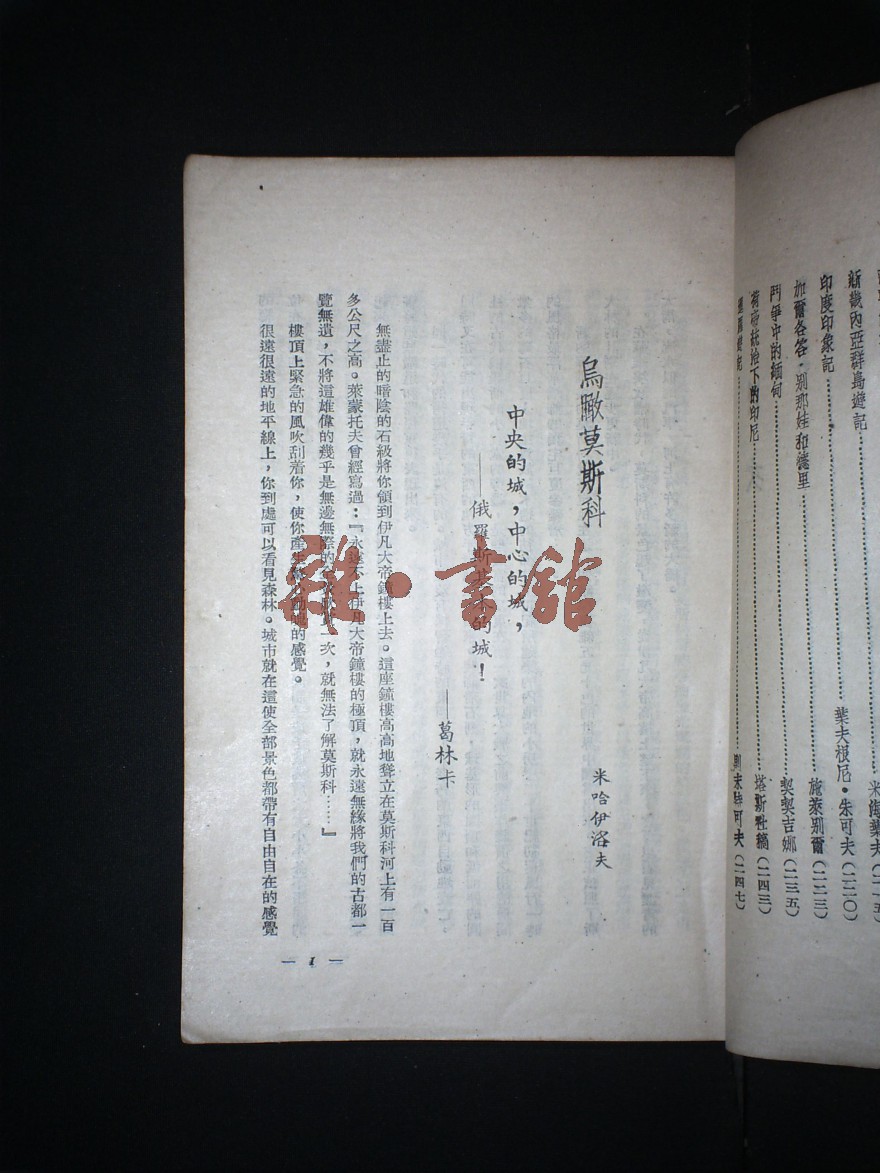 新幾內亞群島遊記
印度印象記
葉夫根尼·朱可夫(二二〇)
加爾各答·別那娃和德里
施萊別爾(二二三)
鬥爭中的緬甸
契契吉娜(二三五)
荷帝統治下的印尼
塔斯社稿(二四三)
可夫(二四七)
烏瞰莫斯科
米哈伊洛夫
中央的城,中心的城,
——俄羅斯的城!
——葛林卡
無盡止的暗陰的石級將你領到伊凡大帝鐘樓上去。這座鐘樓高高地聳立在莫斯科河上有一百
多公尺之高。萊蒙托夫曾經寫過:『永遠不上伊凡大帝鐘樓的極頂,就永遠無緣將我們的古都一
覽無遺,不將這雄偉的幾乎是無邊無際的一次,就無法了解莫斯科……』
樓頂上緊急的風吹刮着你,使你產生的感覺。
很遠很遠的地平線上,你到處可以看見森林。城市就在這使全部景色都帶有自由自在的感覺
— 1 —
雜·書館